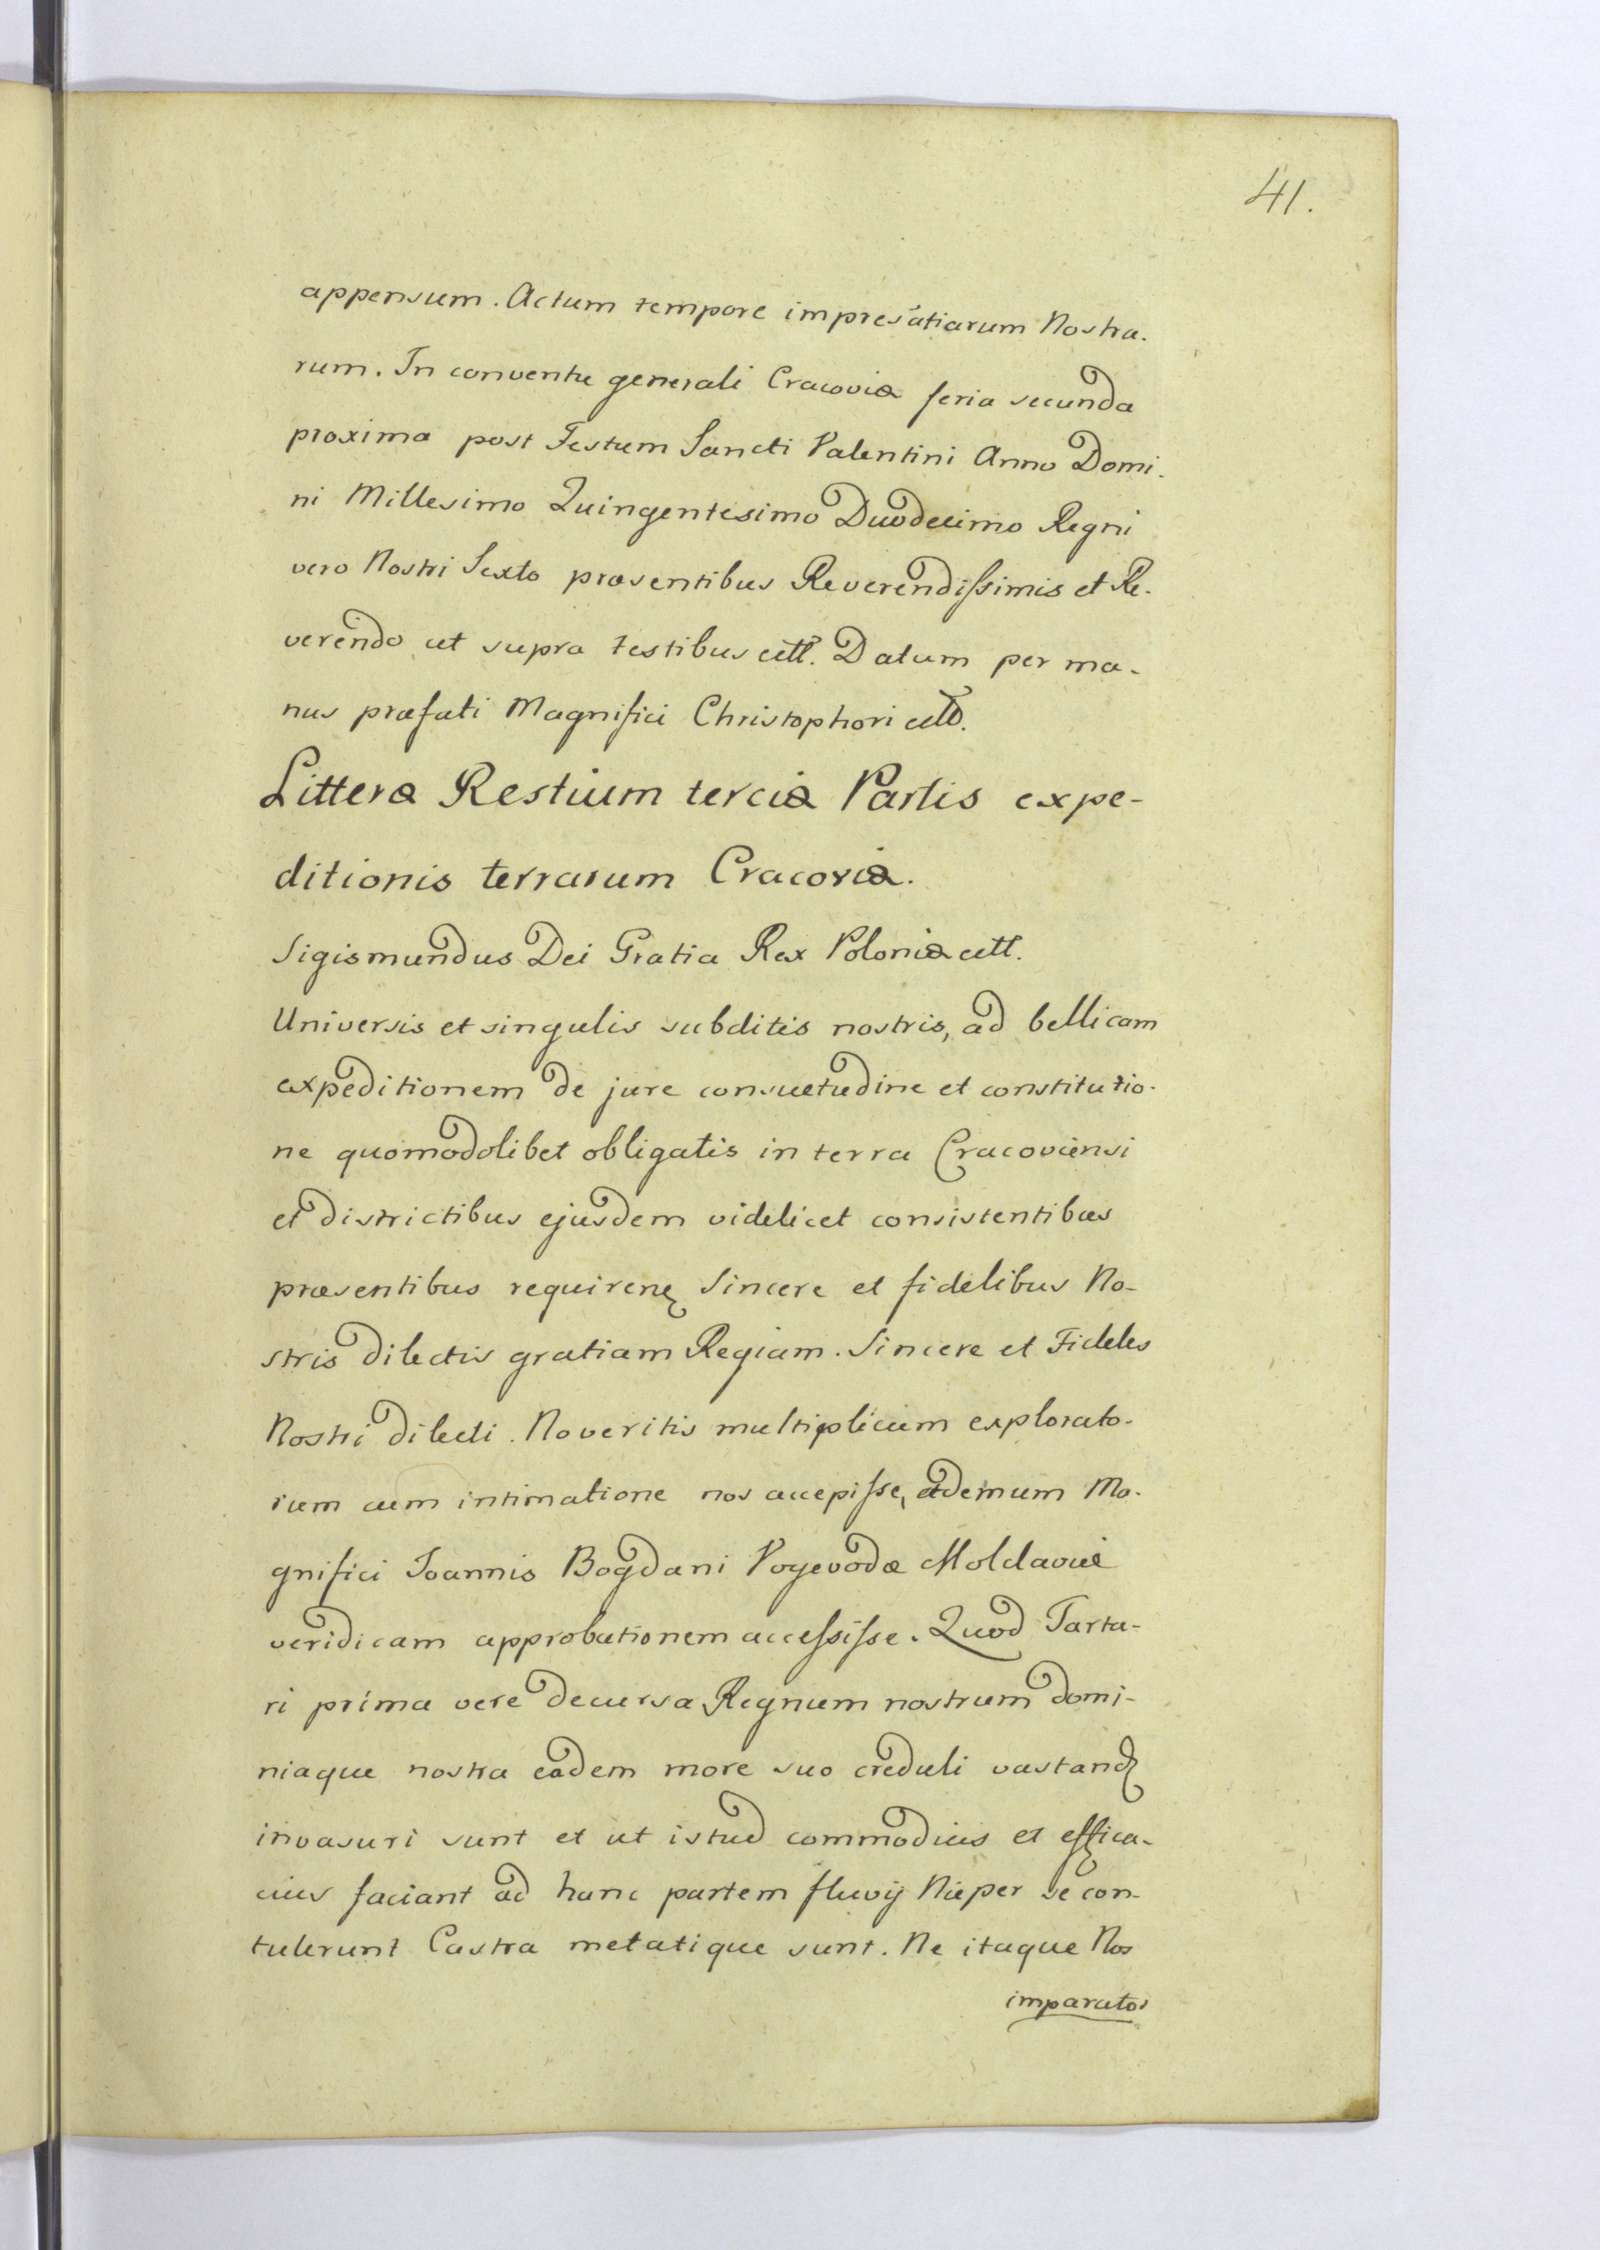 41.
appensum. Actum tempore impresatiarum Nostra.
rum. In conventu generali Cracoviæ feria secunda
proxima post Festum Sancti Valentini Anno Domi.
ni Millesimo Quingentesimo Duodecimo Regni
vero Nostri Sexto præsentibus Reverendissimis et Re.
verendo ut supra testibus cett. Datum per ma-
nus præfati Magnifici Christophori cett.
Litteræ Restium terciæ Partis expe-
ditionis terrarum Cracoviæ.
Sigismundus Dei Gratia Rex Poloniæ cett.
Universis et singulis subditis nostris, ad bellicam
expeditionem de jure consuetudine et constitutio-
ne quomodolibet obligatis in terra Cracoviensi
et districtibus ejusdem videlicet consistentibus
præsentibus requirenꝫ Sincere et fidelibus No-
stris dilectis gratiam Regiam. Sincere et Fideles
Nostri dilecti. Noveritis multiplicum explorato-
rum cum intimatione nos accepisse, et demum Ma-
gnifici Joannis Bogdani Voyevodæ Moldaviæ
veridicam approbationem accessisse. Quod Tarta-
ri prima vere decursa Regnum nostrum domi-
niaque nostra eadem more suo creduli vastandꝫ
invasuri sunt et ut istud commodius et effica-
cius faciant ad hanc partem fluvij Nieper se con-
tulerunt Castra metatique sunt. Ne itaque Nos
imparatos